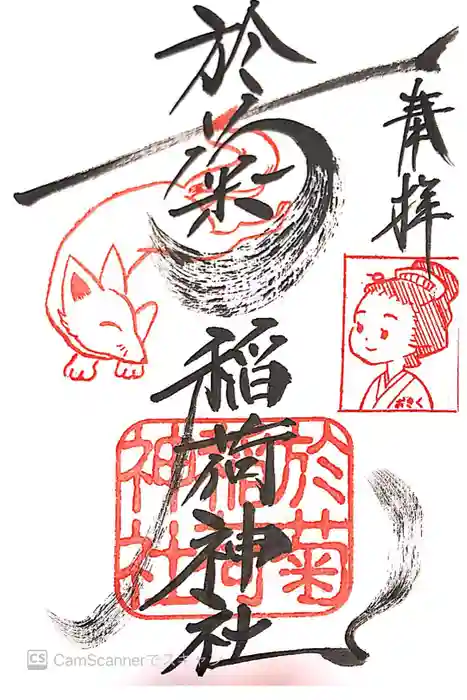 奉拝
於菊稲荷神社
おきく
於菊
稲荷
神社
CamScannerでス